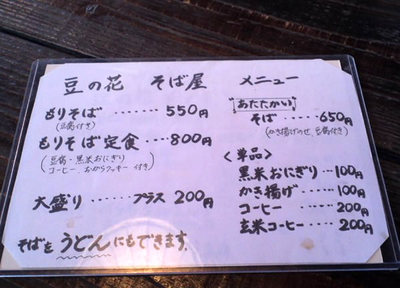 豆の花 そば屋 メニュー
もりそば ‥‥‥ 550円
(豆腐付き)
もりそば定食 ‥‥ 800円
(豆腐・黒米おにぎり
コーヒー おからクッキー 付き)
大盛り ‥‥‥ プラス 200円
そばを うどんにもできます。
あたたかい
そば ‥‥‥ 650円
(かき揚げのせ、豆腐付き)
<単品>
黒米おにぎり ‥‥ 100円
かき揚げ ‥‥‥ 100円
コーヒー ‥‥‥ 200円
玄米コーヒー ‥‥ 200円